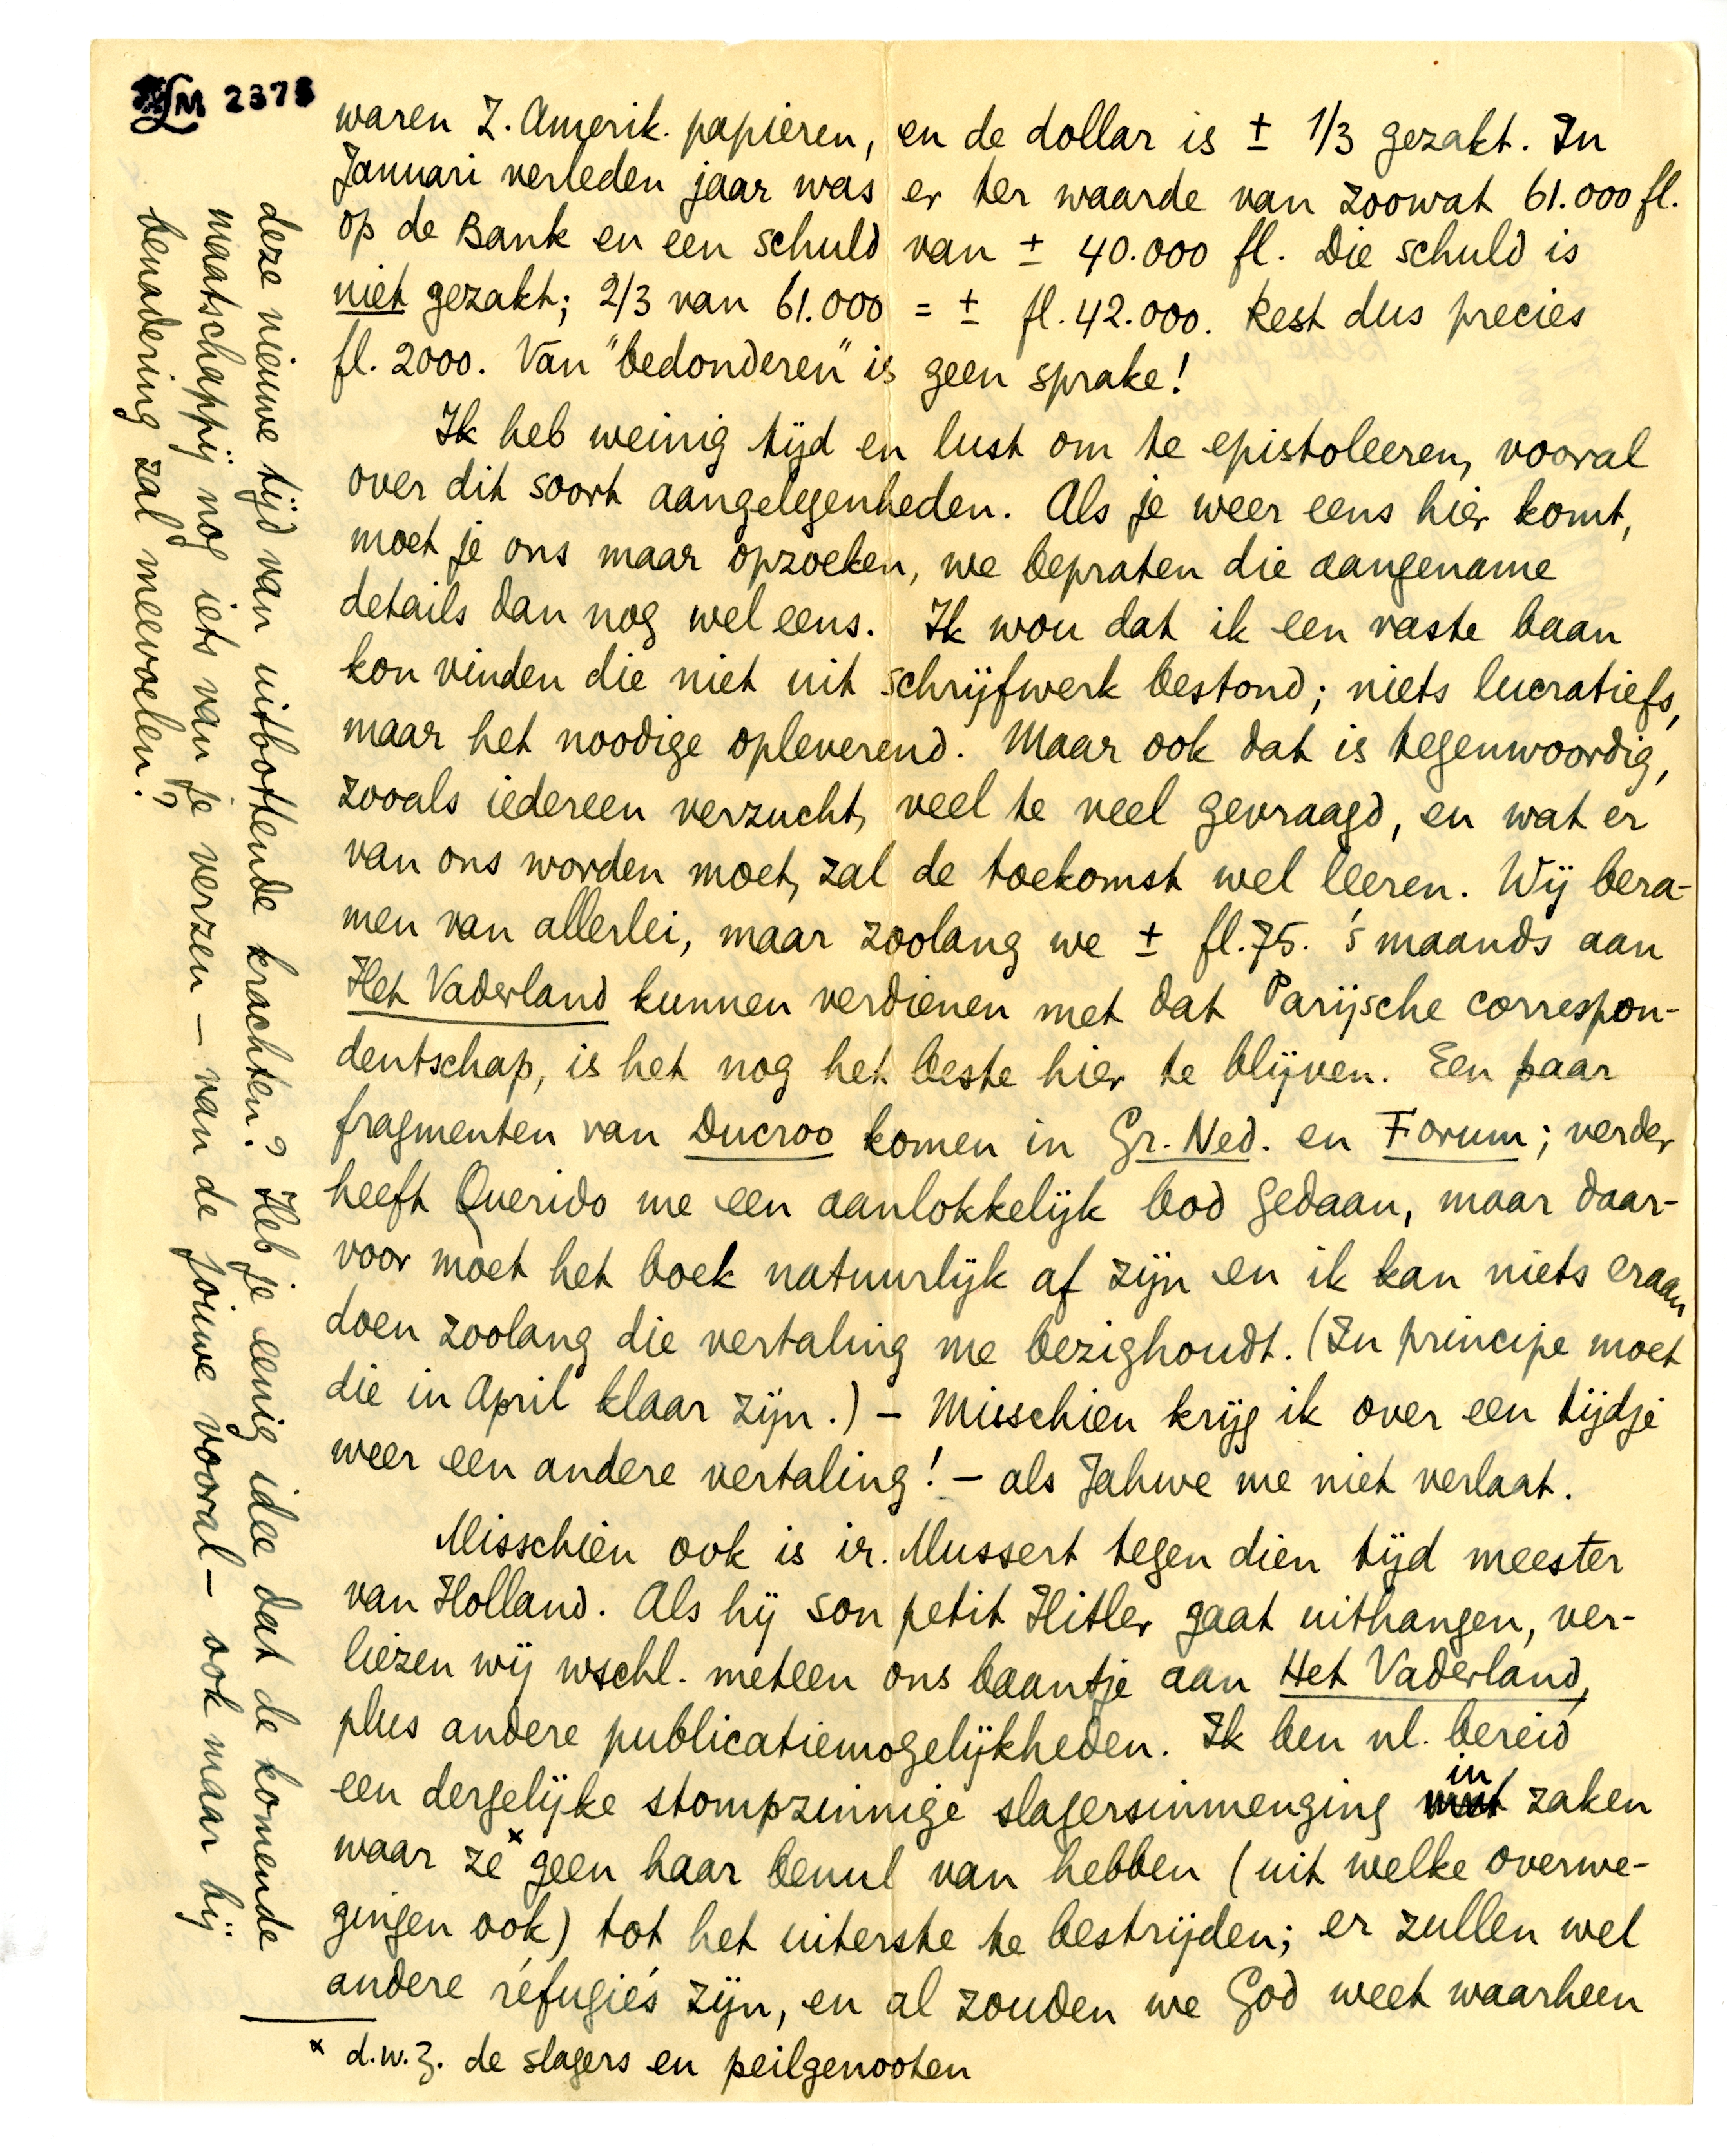 LM 2378
waren Z. Amerik. papieren, en de dollar is ± 1/3 gezakt. In
Januari verleden jaar was er ter waarde van zoowat 61.000 fl.
op de Bank en een schuld van ± 40.000 fl. Die schuld is
niet gezakt; 2/3 van 61.000 = ± fl. 42.000. Rest dus precies
fl. 2000. Van "bedonderen" is geen sprake!
Ik heb weinig tijd en lust om te epistoleeren, vooral
over dit soort aangelegenheden. Als je weer eens hier komt,
moet je ons maar opzoeken, we bepraten die aangename
details dan nog wel eens. Ik wou dat ik een vaste baan
kon vinden die niet uit schrijfwerk bestond; niets lucratiefs,
maar het noodige opleverend. Maar ook dat is tegenwoordig,
zooals iedereen verzucht, veel te veel gevraagd, en wat er
van ons worden moet, zal de toekomst wel leeren. Wij bera-
men van allerlei, maar zoolang we ± fl. 75. 's maands aan
Het Vaderland kunnen verdienen met dat Parijsche correspon-
dentschap, is het nog het beste hier te blijven. Een paar
fragmenten van Ducroo komen in Gr. Ned. en Forum; verder
heeft Querido me een aanlokkelijk bod gedaan, maar daar-
voor moet het boek natuurlijk af zijn en ik kan niets eraan
doen zoolang die vertaling me bezighoudt. (In principe moet
die in April klaar zijn.) – Misschien krijg ik over een tijdje
weer een andere vertaling! – als Jahwe me niet verlaat.
Misschien ook is ir. Mussert tegen dien tijd meester
van Holland. Als hij son petit Hitler gaat uithangen, ver-
liezen wij wschl. meteen ons baantje aan Het Vaderland,
plus andere publicatiemogelijkheden. Ik ben nl. bereid
een dergelijke stompzinnige slagersinmenging in zaken
waar ze x geen haar benul van hebben (uit welke overwe-
gingen ook) tot het uiterste te bestrijden; er zullen wel
andere réfugiés zijn, en al zouden we God weet waarheen
x d.w.z. de slagers en peilgenooten
deze nieuwe tijd van uitbottende krachten? Heb je eenig idee dat de komende
maatschappij nog iets van je verzen – van de jouwe vooral – ook maar bij
benadering zal meevoelen?